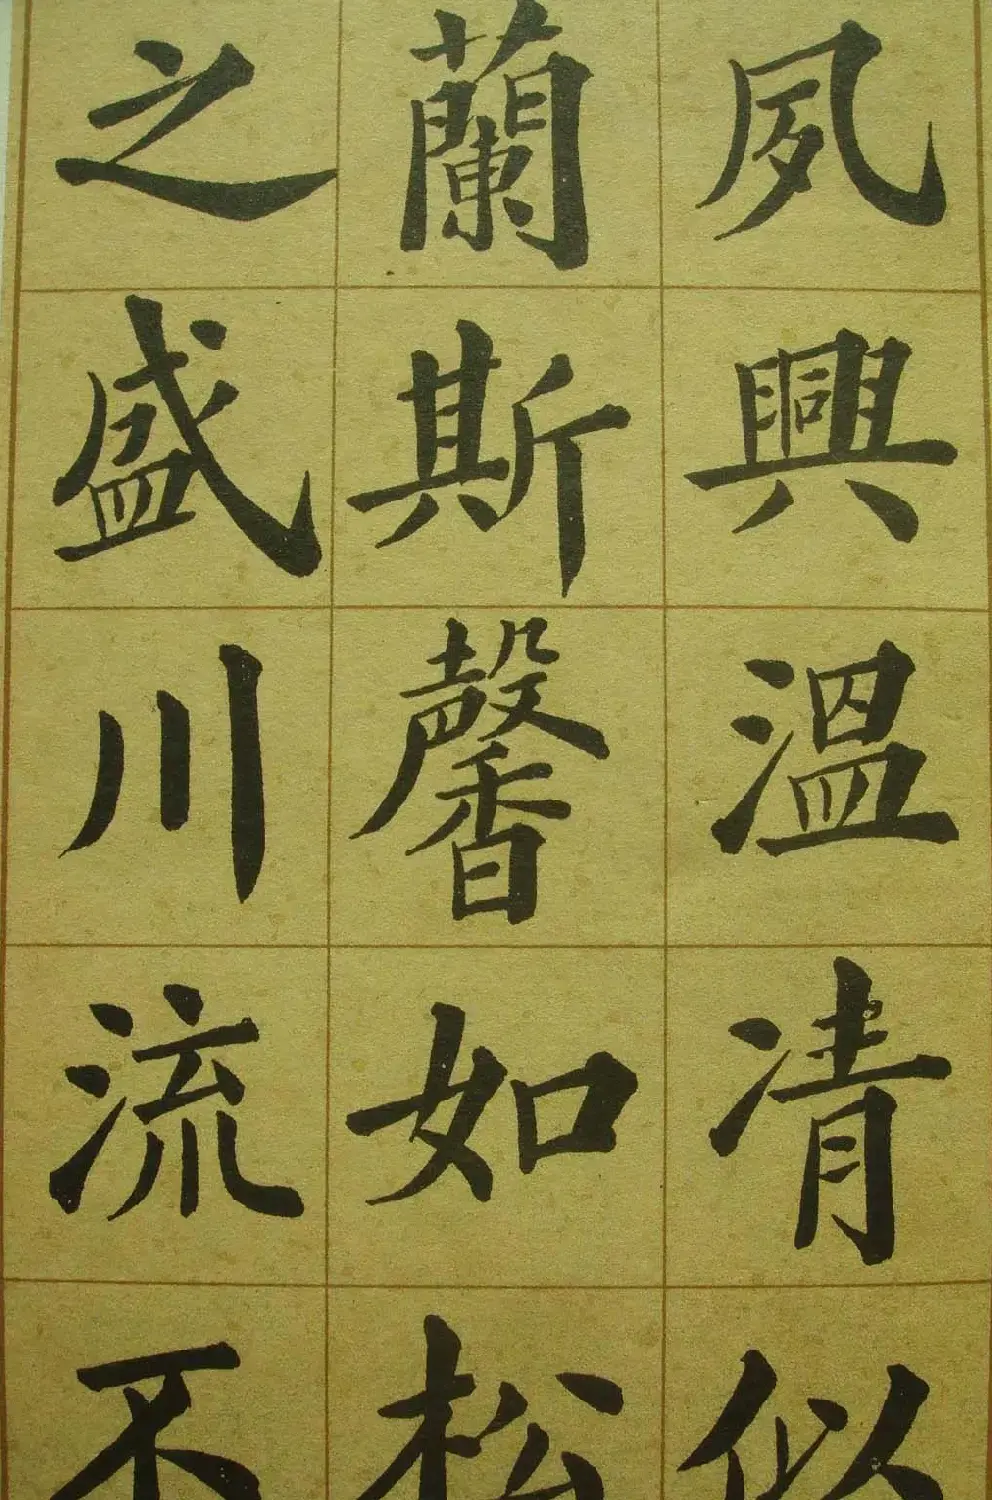 夙興溫凊似
蘭斯馨如松
之盛川流不